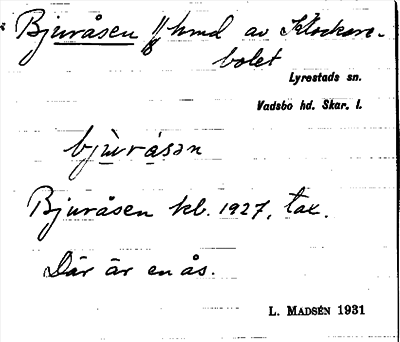 Bjuråsen hmd av Klockare-
bolet
Lyrestads sn.
Vadsbo hd. Skar. l.
bjùvråsən
Bjuråsen kb. 1927, tax.
Där är en ås.
L. MADSÉN 1931